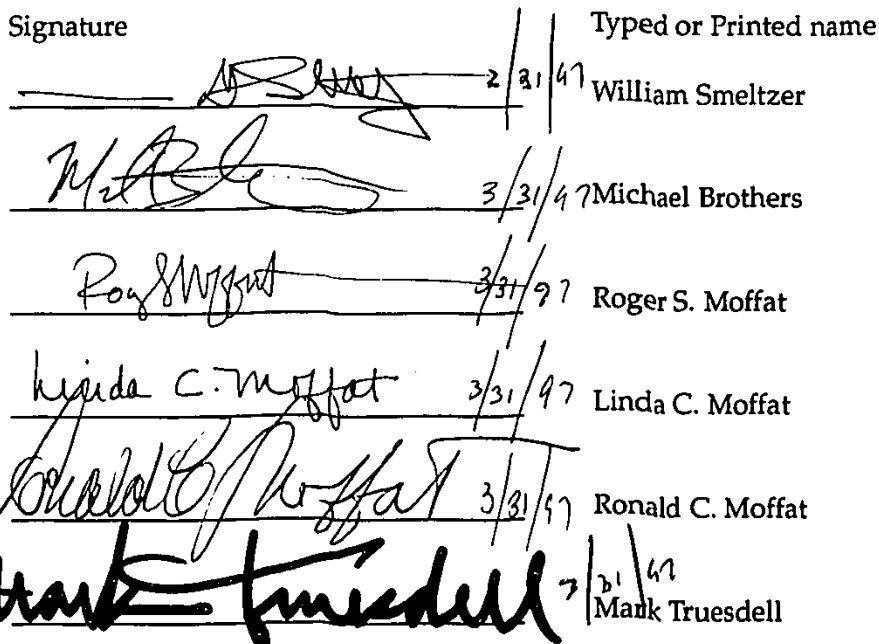 Signature Typed or Printed name
3/31/97 William Smeltzer
3/31/97 Michael Brothers
Roger S Moffat 3/31/97 Roger S. Moffat
Linda C. Moffat 3/31/97 Linda C. Moffat
Ronald C Moffat 3/31/97 Ronald C. Moffat
Mark Truesdell 3/31/97 Mark Truesdell